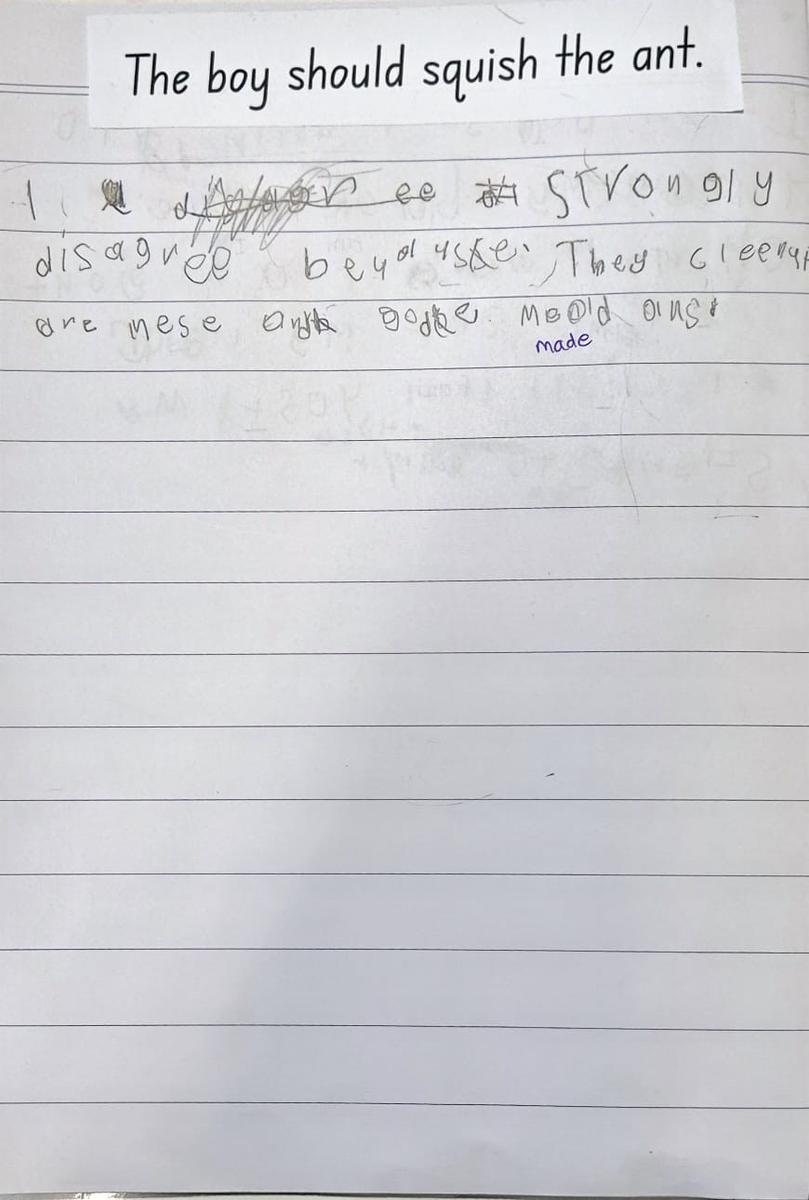 The boy should squish the ant.
I strongly
disagree They cleery
are nese and gode meaid anst
made